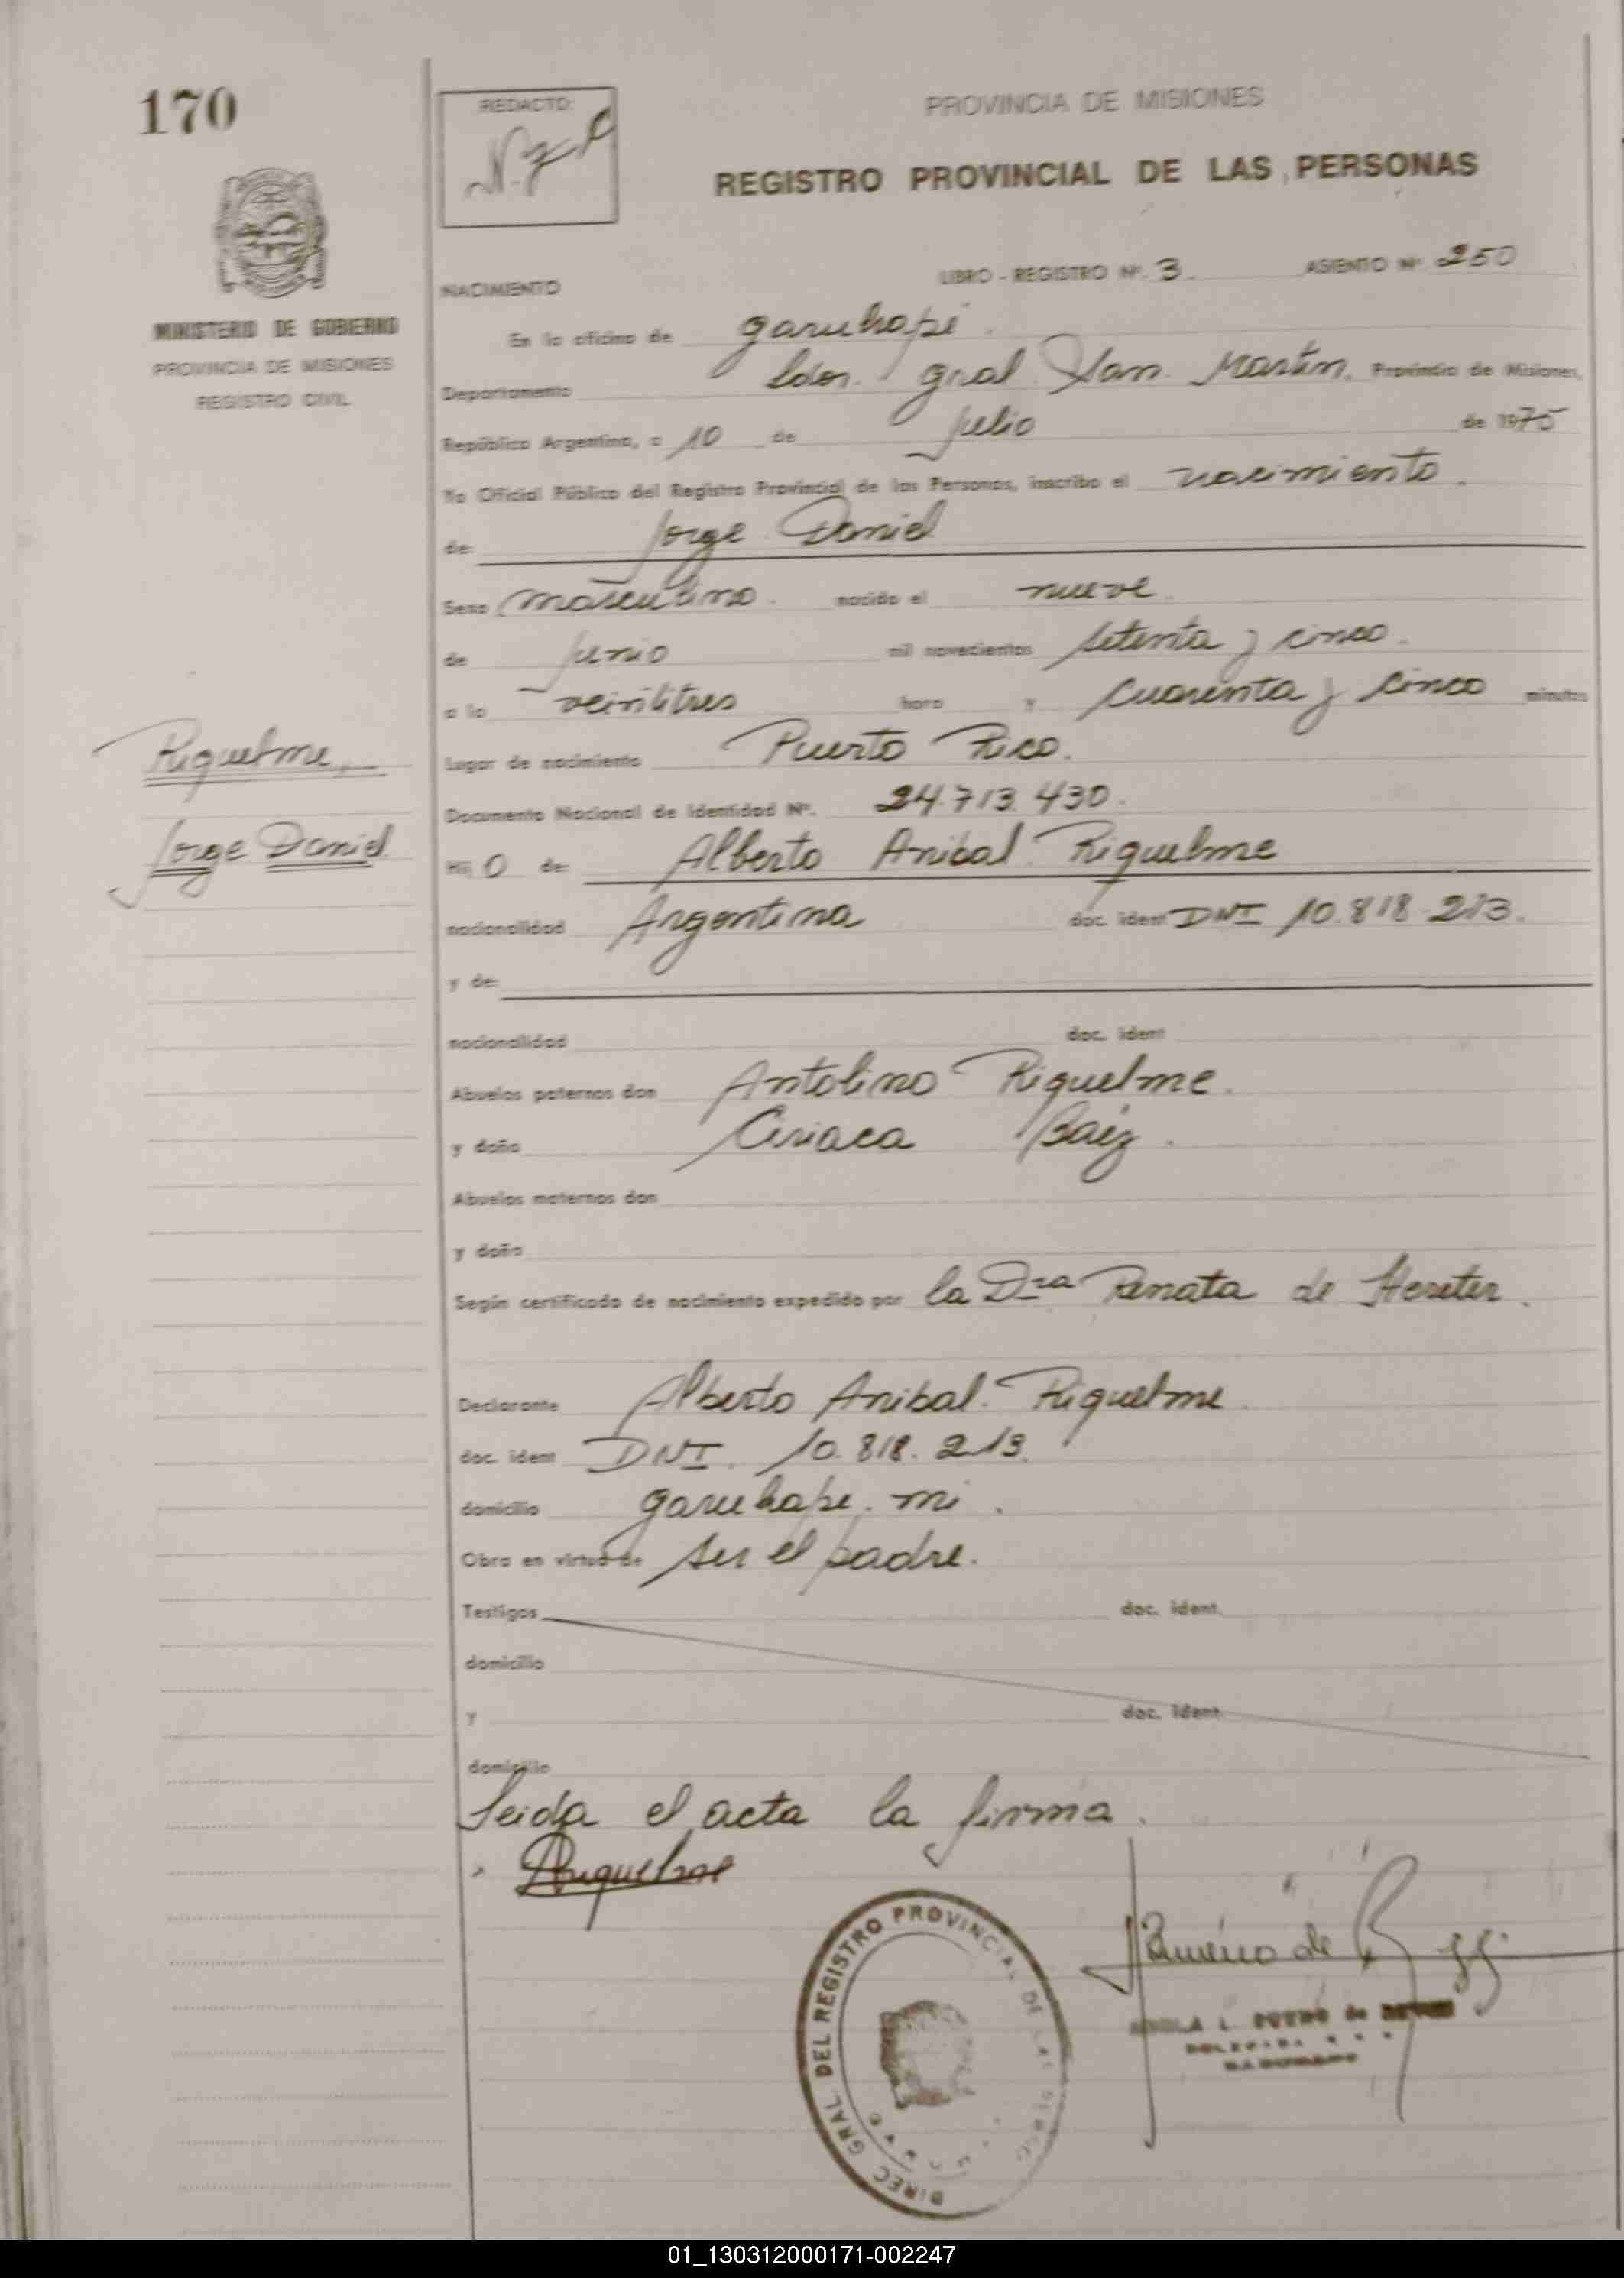 170
REDACTO:
PROVINCIA DE MISIONES
REGISTRO PROVINCIAL DE LAS PERSONAS
MINISTERIO DE GOBIERNO
PROVINCIA DE MISIONES
REGISTRO CIVIL
LIBRO - REGISTRO Nº. 3. ASIENTO Nº 250
NACIMIENTO
En la oficina de garuhapé.
Departamento Ldor. gral San Martín, Provincia de Misiones,
República Argentina, a 10 de julio de 1975
Yo Oficial Público del Registro Provincial de las Personas, inscribo el nacimiento.
de: Jorge Daniel
Sexo masculino. nacido el nueve
de junio mil novecientos setenta y cinco.
a la veintitres hora y cuarenta y cinco minutos
Lugar de nacimiento Puerto Rico.
Riquelme,
Jorge Daniel
Documento Nacional de Identidad Nº. 24.713.430.
Hij o de: Alberto Anibal Riquelme
nacionalidad Argentina doc. ident DNI 10.818.213.
y de:
nacionalidad doc. ident
Abuelos paternos don Antolino Riquelme.
y doña Ciriaca Baéz.
Abuelos maternos don
y doña
Según certificado de nacimiento expedido por la Dra Renata de Hereter.
Declarante Alberto Anibal Riquelme
doc. ident DNI. 10.818.213.
domicilio garuhape. mi.
Obra en virtud de ser el padre.
Testigos doc. ident.
domicilio
y doc. ident.
domicilio
Leida el acta la firma.
Riquelme
DIREC. GRAL. DEL REGISTRO PROVINCIAL DE LAS
01_130312000171-002247